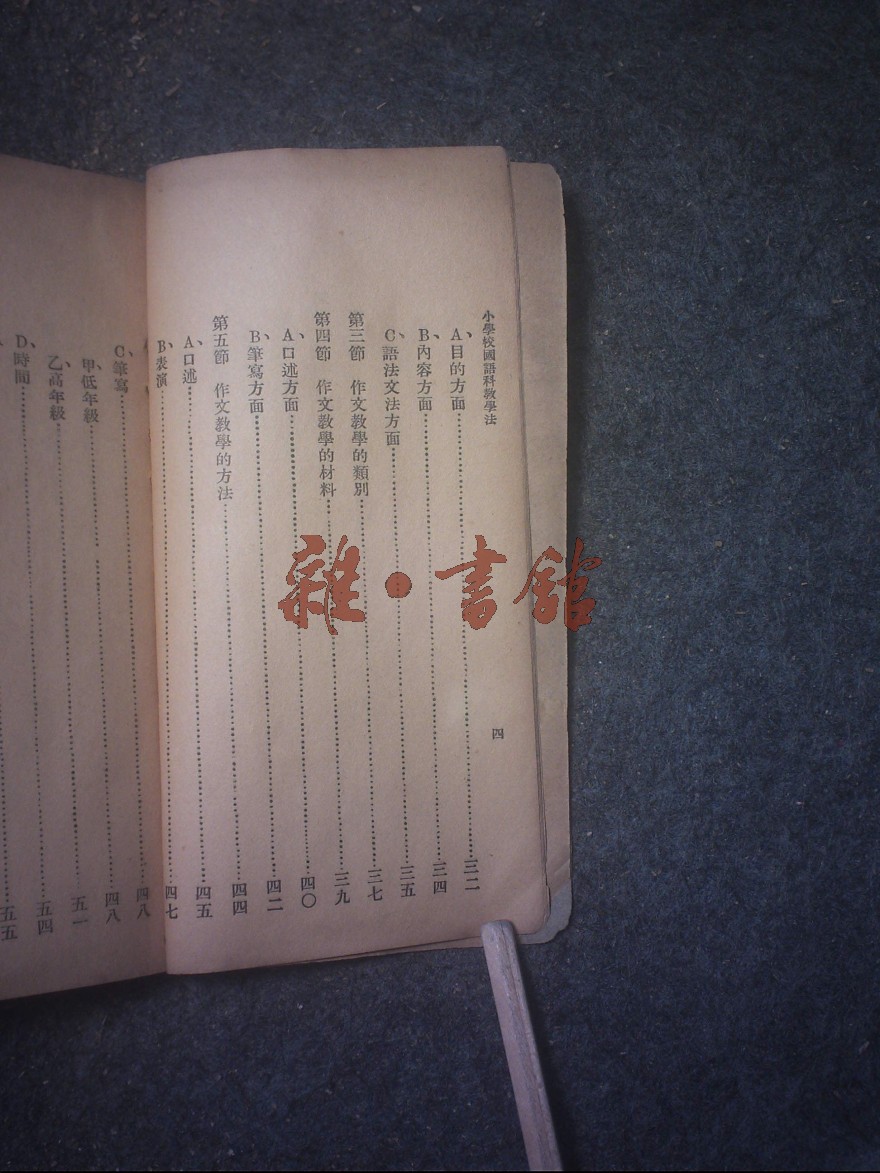 小學校國語科教學法 四
A、目的方面……三二
B、內容方面……三四
C、語法文法方面……三五
第三節 作文教學的類別……三七
第四節 作文教學的材料……三九
A、口述方面……四〇
B、筆寫方面……四二
第五節 作文教學的方法……四四
A、口述……四五
B、表演……四七
C、筆寫……四八
甲、低年級……四八
乙、高年級……五一
D、時間……五四
五五
雜·書館